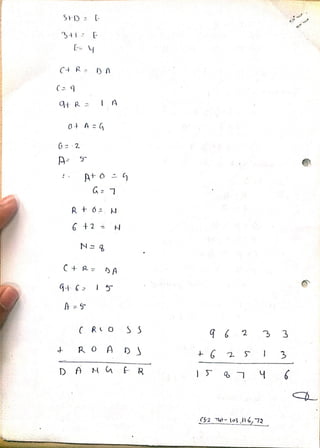 S+D = E
3+1 = E
E = 4
C+R = DA
C = 9
9+R = 1 A
O+A = G
O = 2
A = 5
∴ A+O = G
G = 7
R + O = N
6 + 2 = N
N = 8
C + R = DA
9 + 6 = 1 5
A = 5
C R O S S
+ R O A D S
D A N G E R
9 6 2 3 3
+ 6 2 5 1 3
1 5 8 7 4 6